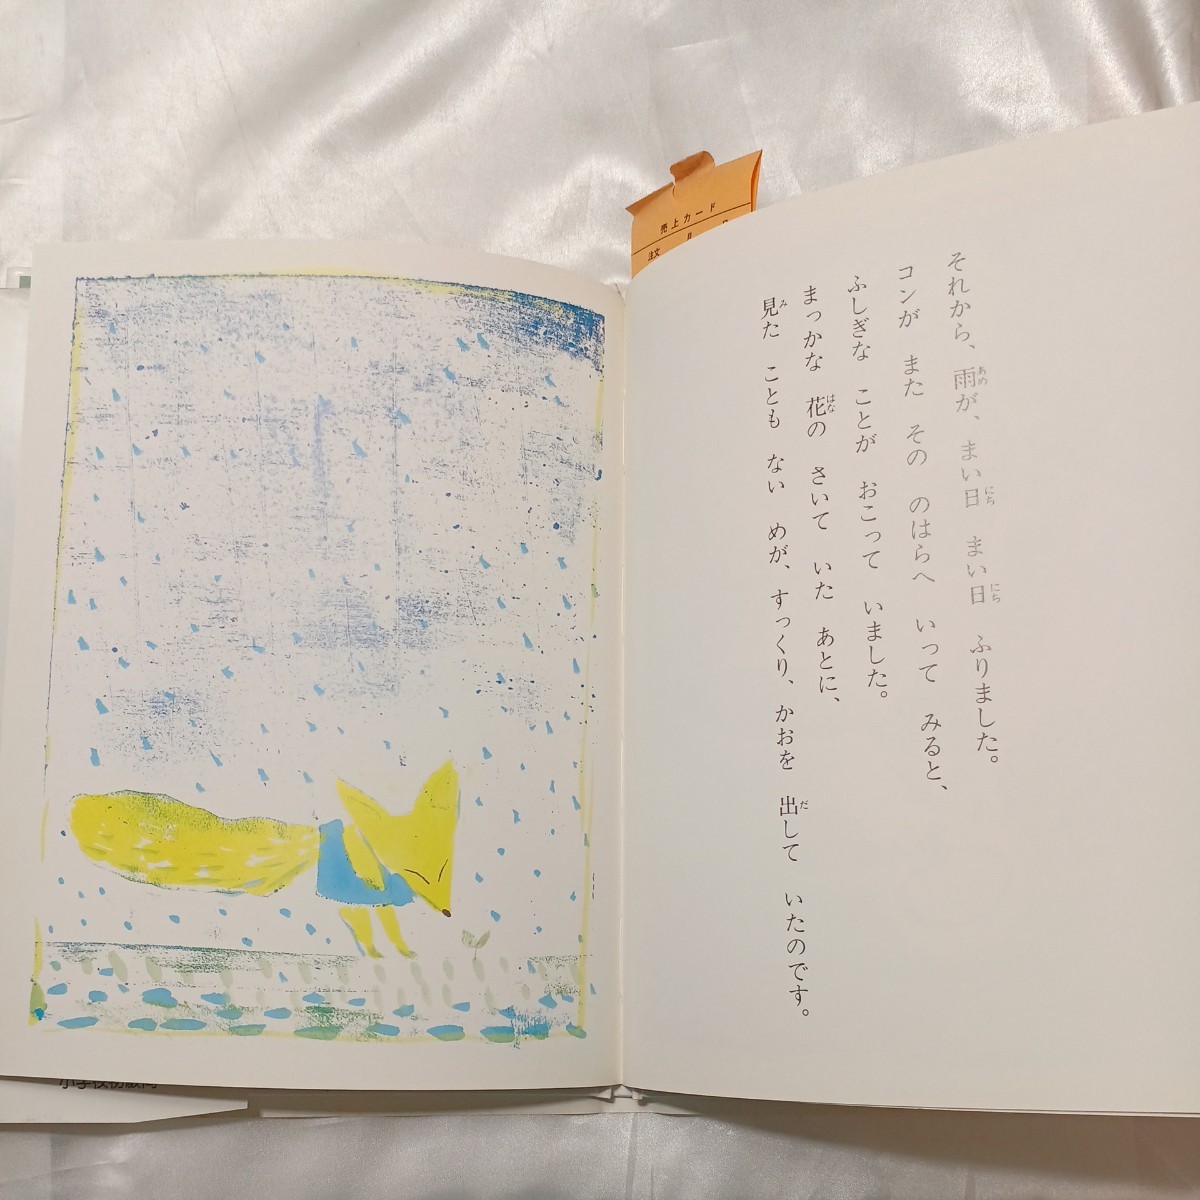 売上カード
注文
月
それから、雨が、まい日 まい日 ふりました。
コンが また その のはらへ いって みると、
ふしぎな ことが おこって いました。
まっかな 花の さいて いた あとに、
見た ことも ない めが、すっくり、かおを 出して いたのです。